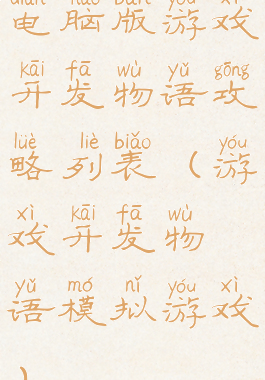 diàn nǎo bǎn yóu xì
电脑版游戏
kāi fā wù yǔ gōng
开发物语攻
lüè liè biǎo yóu
略列表（游
xì kāi fā wù
戏开发物
yǔ mó nǐ yóu xì
语模拟游戏
）